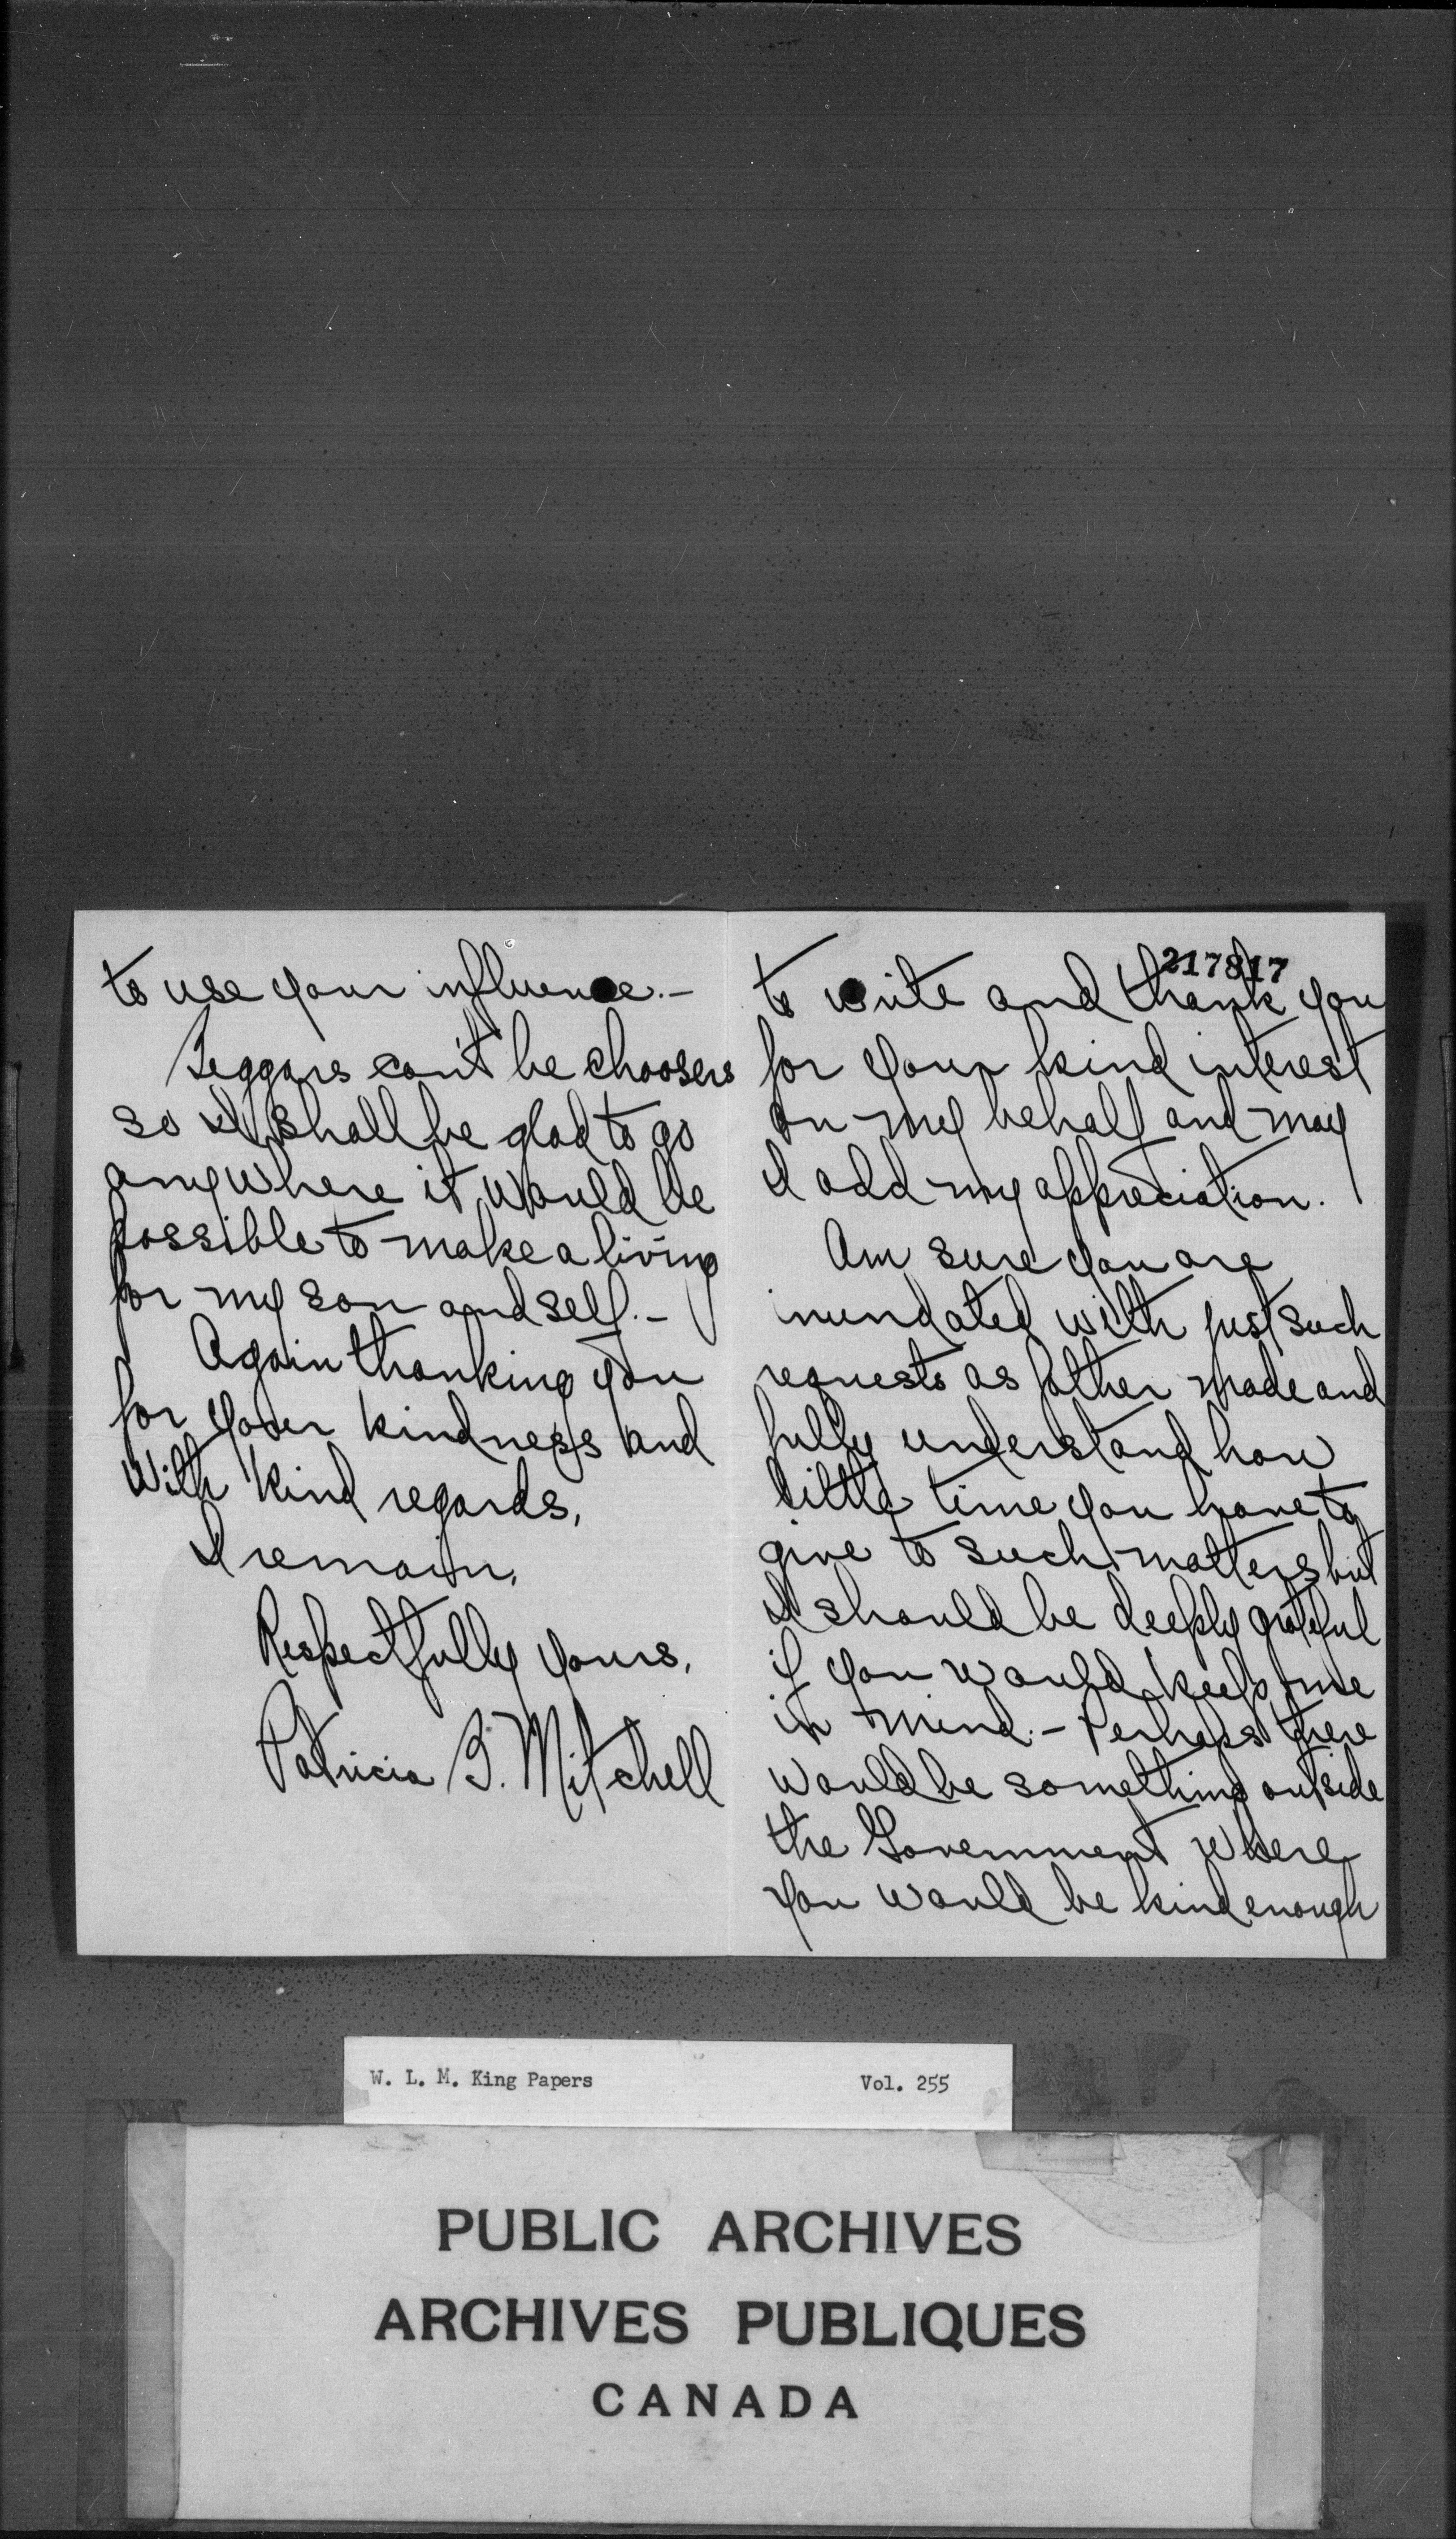 to use your influence.-
Beggars can't be choosers
so I shall be glad to go
anywhere it would be
possible to make a living
for my son and self.-
Again thanking you
for your kindness and
with kind regards,
I remain,
Respectfully yours,
Patricia B. Mitchell
217817
to write and thank you
for your kind interest
on my behalf and may
I add my appreciation.
Am sure you are
inundated with just such
requests as father made and
fully understand how
little time you have to
give to such matters but
I should be deeply grateful
if you would keep me
in mind.- Perhaps there
would be something outside
the Government where
you would be kind enough
W. L. M. King Papers Vol. 255
PUBLIC ARCHIVES
ARCHIVES PUBLIQUES
CANADA